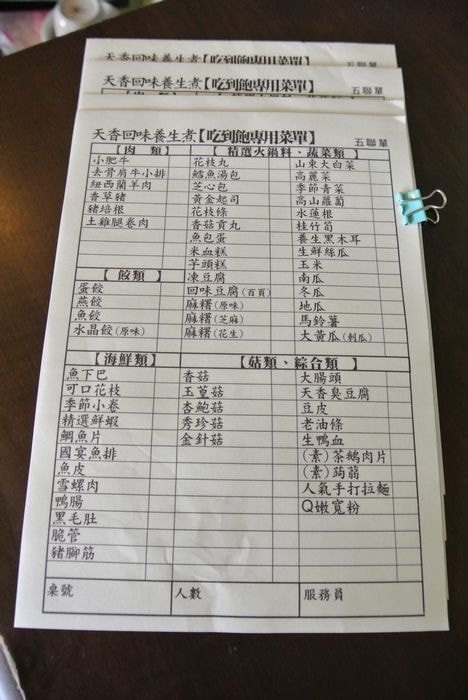 天香回味養生煮【吃到飽專用菜單】
五聯單
天香回味養生煮【吃到飽專用菜單】
五聯單
天香回味養生煮【吃到飽專用菜單】
五聯單
【肉 類】 【精選火鍋料、蔬菜類】
小肥牛 花枝丸 山東大白菜
去骨肩牛小排 鱈魚湯包 高麗菜
紐西蘭羊肉 芝心包 季節青菜
香草豬 黃金起司 高山蘿蔔
豬培根 花枝條 水蓮根
土雞腿卷肉 香菇貢丸 桂竹筍
魚包蛋 養生黑木耳
米血糕 生鮮絲瓜
芋頭糕 玉米
【餃類】 凍豆腐 南瓜
蛋餃 回味豆腐(百頁) 冬瓜
燕餃 麻糬(原味) 地瓜
魚餃 麻糬(芝麻) 馬鈴薯
水晶餃(原味) 麻糬(花生) 大黃瓜(刺瓜)
【海鮮類】 【菇類、綜合類】
魚下巴 香菇 大腸頭
可口花枝 玉蕈菇 天香臭豆腐
季節小卷 杏鮑菇 豆皮
精選鮮蝦 秀珍菇 老油條
鯛魚片 金針菇 生鴨血
國宴魚排 (素)茶鵝肉片
魚皮 (素)蒟蒻
雪螺肉 人氣手打拉麵
鴨腸 Q嫩寬粉
黑毛肚
脆管
豬腳筋
桌號 人數 服務員